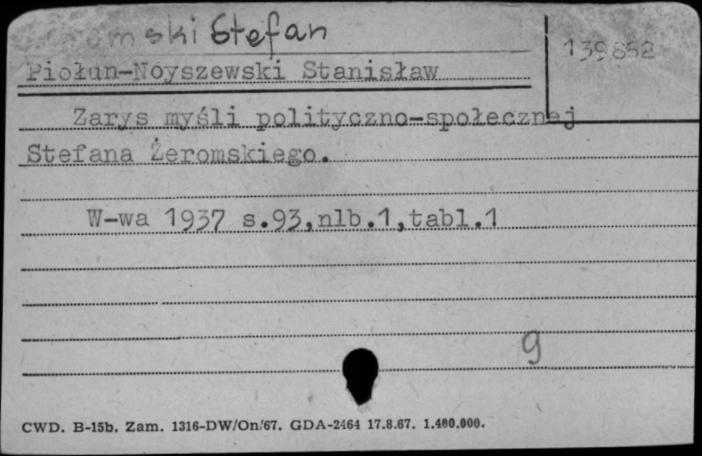 mski Stefan
139852
Piołun-Noyszewski Stanisław
Zarys myśli polityczno-społecznej
Stefana Żeromskiego.
W-wa 1937 s.93,nlb.1,tabl.1
9
CWD. B-15b. Zam. 1316-DW/On/67. GDA-2464 17.8.67. 1.400.000.